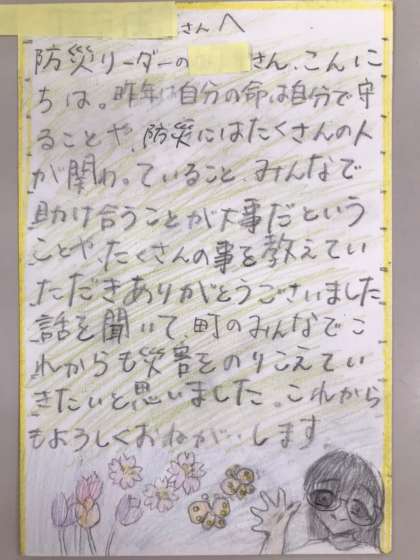 さんへ
防災リーダーの さん、こんに
ちは。昨年は自分の命は自分で守
ることや、防災にはたくさんの人
が関わっていること、みんなで
助け合うことが大事だという
ことや、たくさんの事を教えてい
ただきありがとうございました
話を聞いて、町のみんなでこ
れからも災害をのりこえてい
きたいと思いました。これから
もよろしくおねがいします。